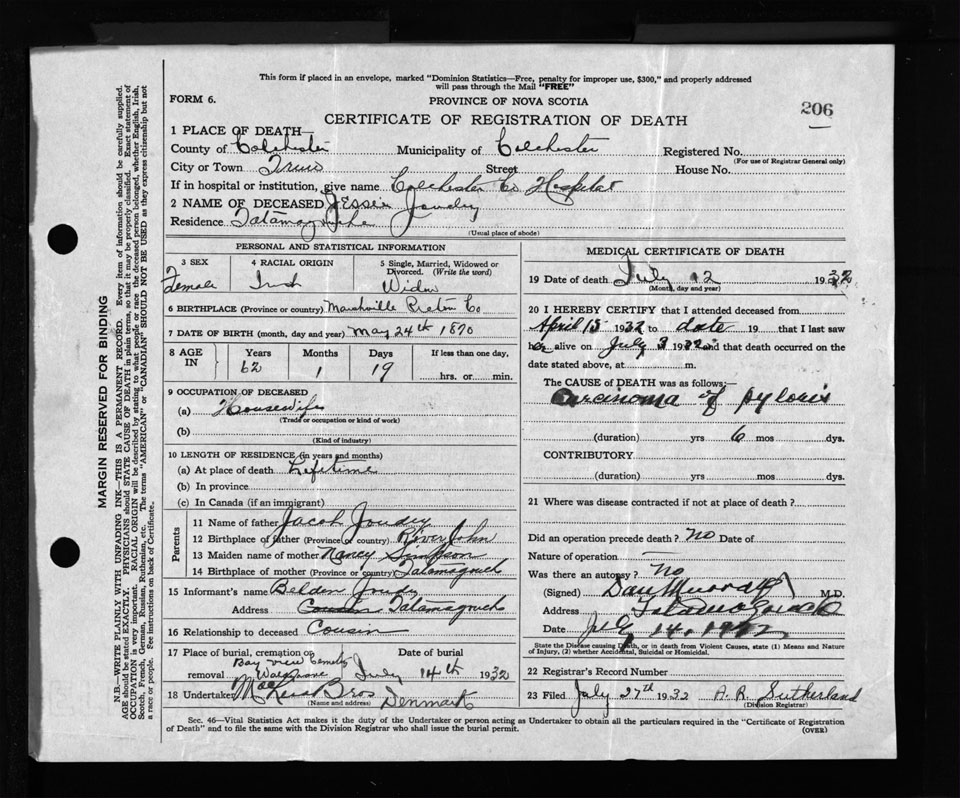 This form if placed in an envelope, marked "Dominion Statistics—Free, penalty for improper use, $300," and properly addressed
will pass through the Mail "FREE"
FORM 6.
PROVINCE OF NOVA SCOTIA
206
CERTIFICATE OF REGISTRATION OF DEATH
1 PLACE OF DEATH—
County of Colchester Municipality of Colchester Registered No.
(For use of Registrar General only)
City or Town Truro Street House No.
If in hospital or institution, give name Colchester Co Hospital
2 NAME OF DECEASED Jessie Joudry
Residence Tatamagouche
(Usual place of abode)
PERSONAL AND STATISTICAL INFORMATION
3 SEX 4 RACIAL ORIGIN 5 Single, Married, Widowed or
Divorced. (Write the word)
Female Irish Widow
6 BIRTHPLACE (Province or country) Marshville Pictou Co
7 DATE OF BIRTH (month, day and year) May 24th 1870
8 AGE IN Years Months Days If less than one day,
62 1 19 hrs. or min.
9 OCCUPATION OF DECEASED
(a) Housewife
(Trade or occupation or kind of work)
(b)
(Kind of industry)
10 LENGTH OF RESIDENCE (in years and months)
(a) At place of death Lifetime
(b) In province
(c) In Canada (if an immigrant)
Parents
11 Name of father Jacob Joudry
12 Birthplace of father (Province or country) River John
13 Maiden name of mother Nancy Simpson
14 Birthplace of mother (Province or country) Tatamagouch
15 Informant's name Belden Joudry
Address Cousin Tatamagouch
16 Relationship to deceased Cousin
17 Place of burial, cremation or Date of burial
Bay View Cemetery
removal July 14th 1932
18 Undertaker Bros
(Name and address) Denmark
MEDICAL CERTIFICATE OF DEATH
19 Date of death July 12 1932
(Month, day and year)
20 I HEREBY CERTIFY that I attended deceased from
April 15 1932 to date 19 that I last saw
her alive on July 3 1932 and that death occurred on the
date stated above, at m.
The CAUSE of DEATH was as follows:—
Carcinoma of pyloris
(duration) yrs 6 mos dys.
CONTRIBUTORY
(duration) yrs mos dys.
21 Where was disease contracted if not at place of death?
Did an operation precede death? No Date of
Nature of operation
Was there an autopsy? No
(Signed) Dan Murray M.D.
Address Tatamagouche
Date July 14, 1932
State the Disease causing Death, or in death from Violent Causes, state (1) Means and Nature
of Injury, (2) whether Accidental, Suicidal or Homicidal.
22 Registrar's Record Number
23 Filed July 27th 1932 A. R. Sutherland
(Division Registrar)
Sec. 46—Vital Statistics Act makes it the duty of the Undertaker or person acting as Undertaker to obtain all the particulars required in the "Certificate of Registration
of Death" and to file the same with the Division Registrar who shall issue the burial permit.
(OVER)
MARGIN RESERVED FOR BINDING
N.B.—WRITE PLAINLY WITH UNFADING INK—THIS IS A PERMANENT RECORD. Every item of information should be carefully supplied.
AGE should be stated EXACTLY. PHYSICIANS should STATE CAUSE OF DEATH in plain terms, so that it may be properly classified. Exact statement of
OCCUPATION is very important. RACIAL ORIGIN will be described by stating to what people or race the deceased person belonged, whether English, Irish,
Scotch, French, German, Russian, Ruthenian, etc. The terms "AMERICAN" or "CANADIAN" SHOULD NOT BE USED as they express citizenship but not
a race or people. See instructions on back of Certificate.